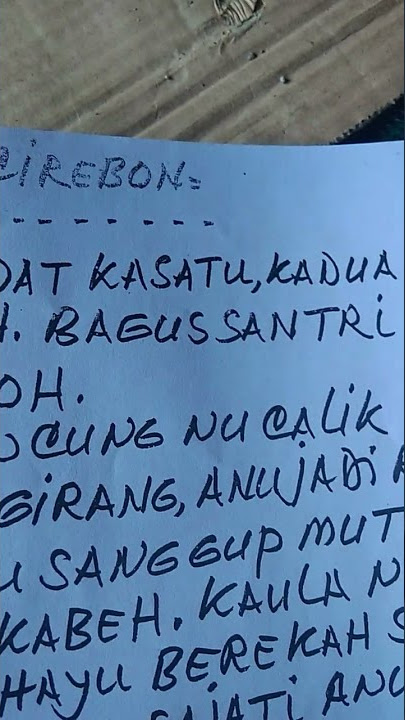 CIREBON=
- - - - - - - -
DAT KASATU, KADUA
H. BAGUS SANTRI
OH.
CUNG NU CALIK
GIRANG, ANU JADI
U SANGGUP MUT
KABEH. KAULA N
HAYU BEREKAH S
SAJATI ANU